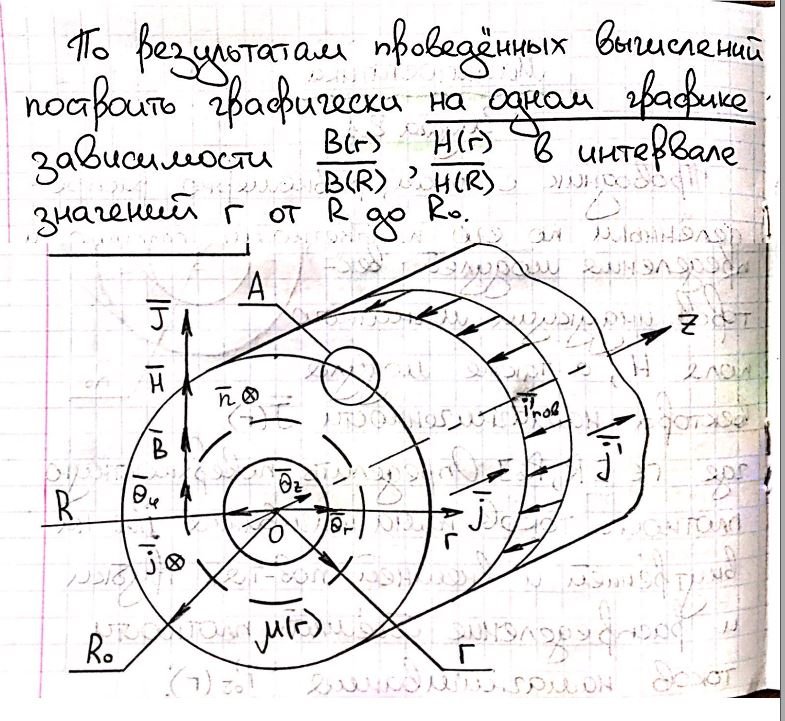 По результатам проведённых вычислений
построить графически на одном графике
зависимости B(r)/B(R), H(r)/H(R) в интервале
значений r от R до R₀.
A
J̄
H̄
B̄
n̄ ⊗
z
ī'пов
j̄'
θ̄φ
θ̄z
R
O
θ̄r
r
j̄
j̄ ⊗
μ(r)
R₀
r